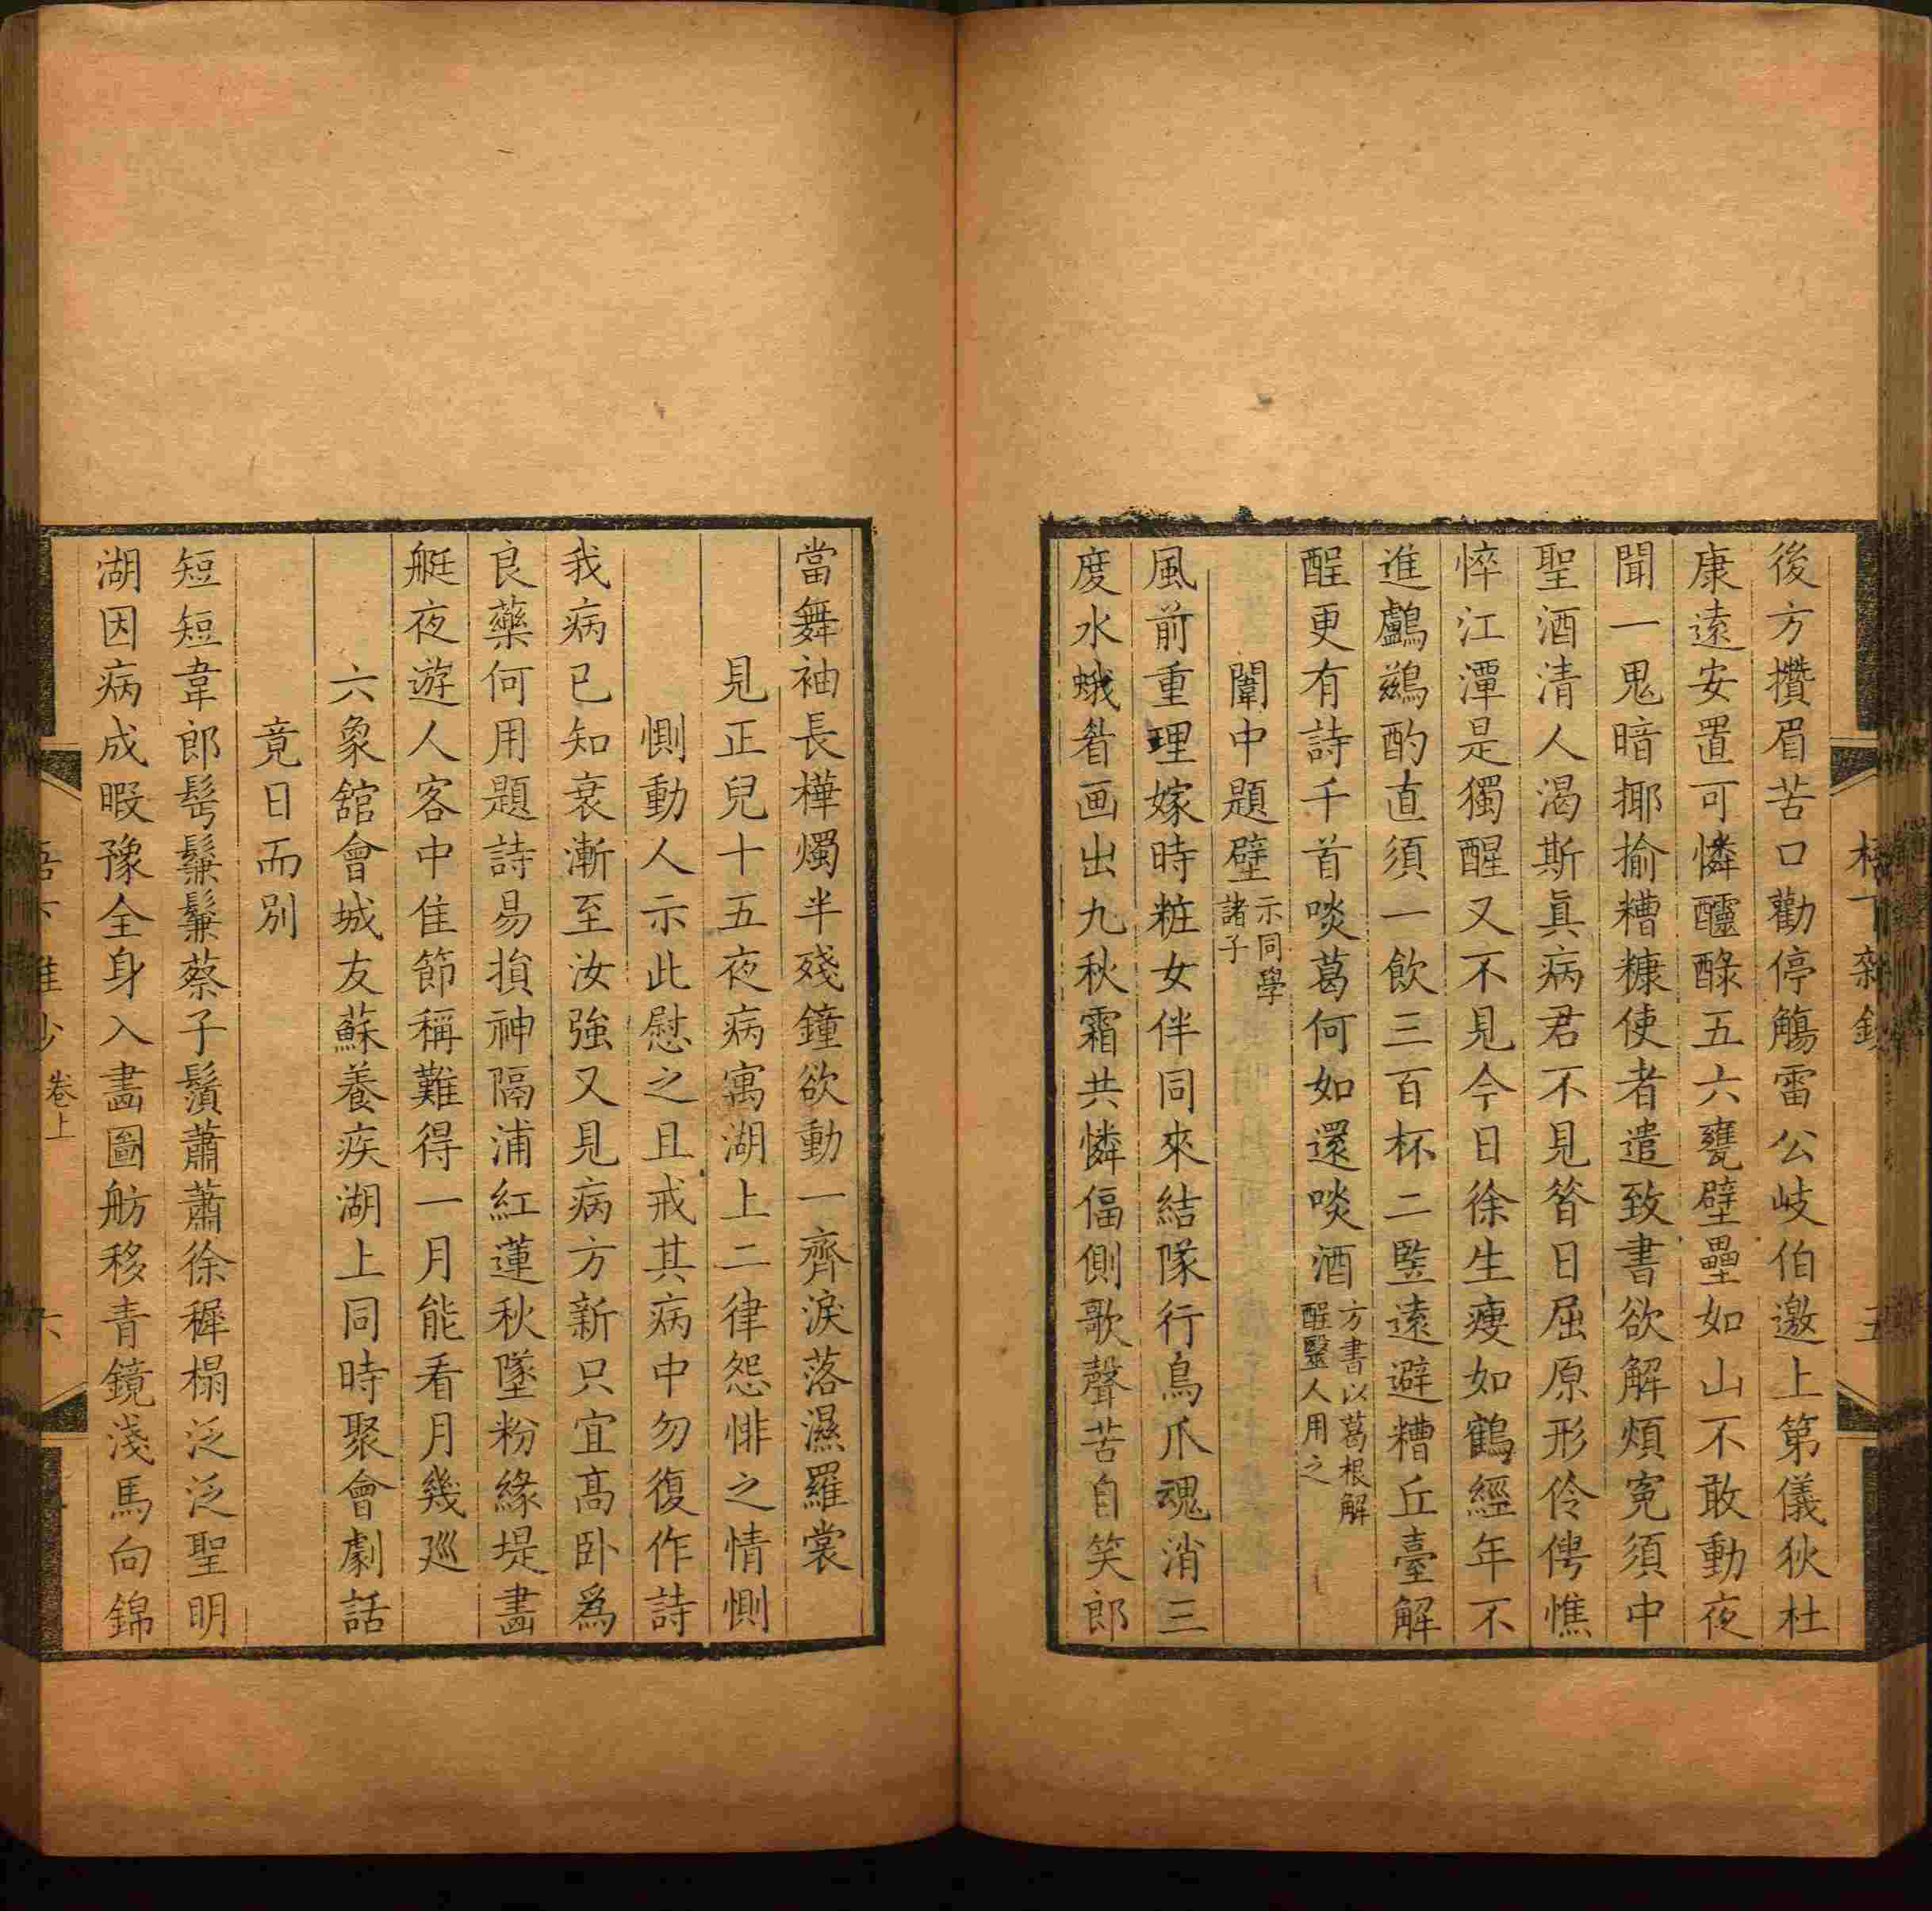 後方攢眉苦口勸停觴雷公岐伯邀上第儀狄杜
康遠安置可憐醽醁五六甕壁壘如山不敢動夜
聞一鬼暗揶揄糟糠使者遣致書欲解煩寃須中
聖酒清人渴斯眞病君不見昝日屈原形伶俜憔
悴江潭是獨醒又不見今日徐生瘦如鶴經年不
進鸕鷀酌直須一飲三百杯二監遠避糟丘臺解
酲更有詩千首啖葛何如還啖酒方書以葛根解
酲醫人用之
闈中題壁示同學
諸子
風前重理嫁時粧女伴同來結隊行鳥爪魂消三
度水蛾眉画出九秋霜共憐偪側歌聲苦自笑郎
當舞袖長樺燭半殘鐘欲動一齊淚落濕羅裳
見正兒十五夜病寓湖上二律怨悱之情惻
惻動人示此慰之且戒其病中勿復作詩
我病已知衰漸至汝強又見病方新只宜高卧爲
良藥何用題詩易損神隔浦紅蓮秋墜粉緣堤畵
艇夜遊人客中佳節稱難得一月能看月幾廵
六象舘會城友蘇養疾湖上同時聚會劇話
竟日而別
短短韋郎髩鬑鬑蔡子鬚蕭蕭徐穉榻泛泛聖明
湖因病成暇豫全身入畵圖舫移青鏡淺馬向錦
卷上
六